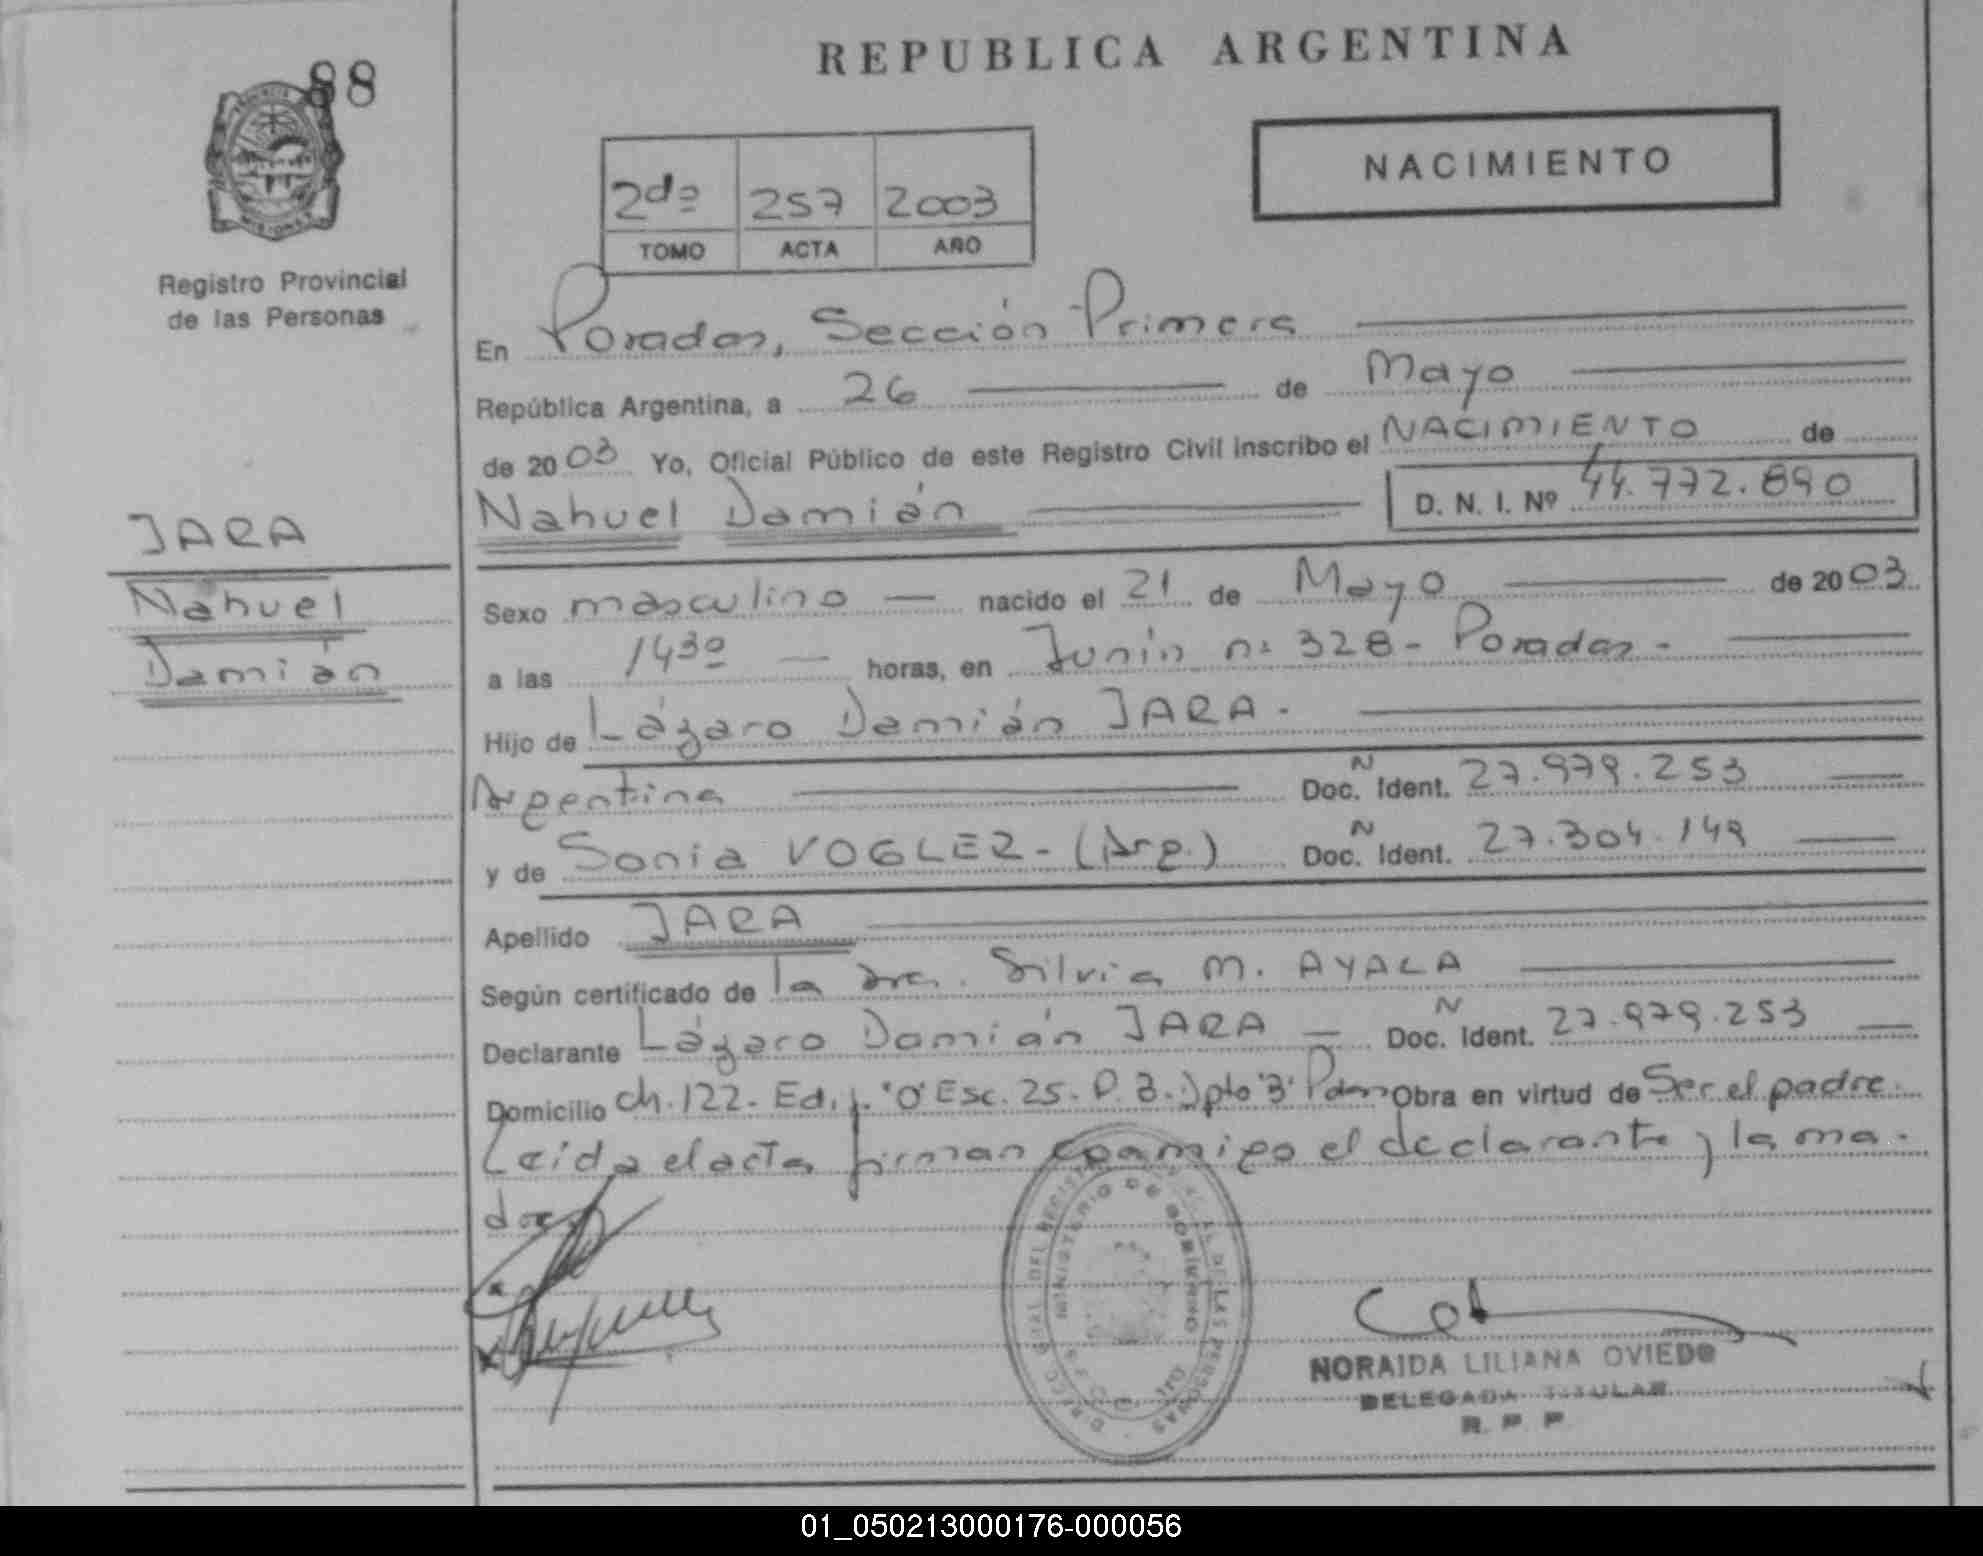 REPUBLICA ARGENTINA
88
NACIMIENTO
2do 257 2003
TOMO ACTA AÑO
Registro Provincial
de las Personas
En Posadas, Sección Primera
República Argentina, a 26 de Mayo
de 2003 Yo, Oficial Público de este Registro Civil inscribo el NACIMIENTO de
Nahuel Damián D. N. I. Nº 44.772.890
JARA
Nahuel
Damián
Sexo masculino nacido el 21 de Mayo de 2003
a las 1430 horas, en Junín nº 328 - Posadas -
Hijo de Lázaro Damián JARA.
Argentina Doc. Ident. N 27.979.253
y de Sonia VOGLER - (Arg.) Doc. Ident. N 27.304.149
Apellido JARA
Según certificado de la Dra. Silvia M. AYALA
Declarante Lázaro Damián JARA Doc. Ident. N 27.979.253
Domicilio ch. 122. Edif. "O" Esc. 25. P. 3. Dpto "3" Pdas Obra en virtud de Ser el padre.
Leída el acta firman conmigo el declarante y la ma-
dre
MINISTERIO DE GOBIERNO
NORAIDA LILIANA OVIEDO
DELEGADA TITULAR
R. P. P.
01_050213000176-000056